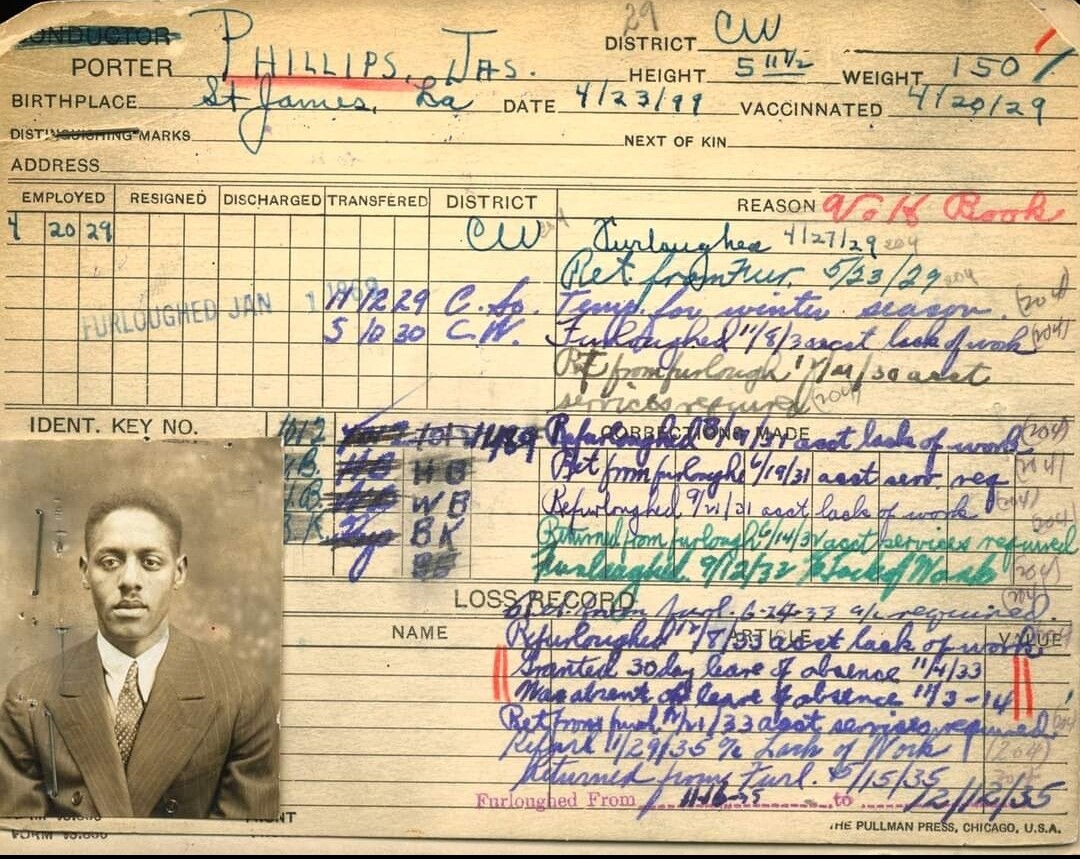 29
CONDUCTOR
PORTER PHILLIPS, JAS. DISTRICT CW
HEIGHT 5 11 1/2 WEIGHT 150
BIRTHPLACE St James, La DATE 4/23/99 VACCINNATED 4/20/29
DISTINGUISHING MARKS NEXT OF KIN
ADDRESS
EMPLOYED RESIGNED DISCHARGED TRANSFERRED DISTRICT REASON Book
4 20 29 CW Furloughed 4/27/29 204
Ret. from Fur. 5/23/29 204
FURLOUGHED JAN 1
11 12 29 C. So. Temp. for winter season. (204)
5 10 30 C.W. Furloughed 11/8/30 acct lack of work (204)
Ret from furlough acct
services required (204)
IDENT. KEY NO. CORRECTIONS MADE
1012 Refurloughed acct lack of work (204)
HB Ret from furlough 6/19/31 acct serv. req (204)
WB Refurloughed 9/21/31 acct lack of work (204)
BK Returned from furlough 6/14/32 acct services required (204)
Furloughed 9/12/32 Lack of Work (204)
LOSS RECORD
from furl. 6-24-33 a/c required. (204)
NAME ARTICLE VALUE
Refurloughed acct lack of work
Granted 30 day leave of absence 11/4/33
Was absent on leave of absence 11/3-14
Ret from furl 33 acct services required
Refurl 1/29/35 % Lack of Work (204)
Returned from Furl. 5/15/35
Furloughed From 11-16-35 to 12/12/35
THE PULLMAN PRESS, CHICAGO, U.S.A.